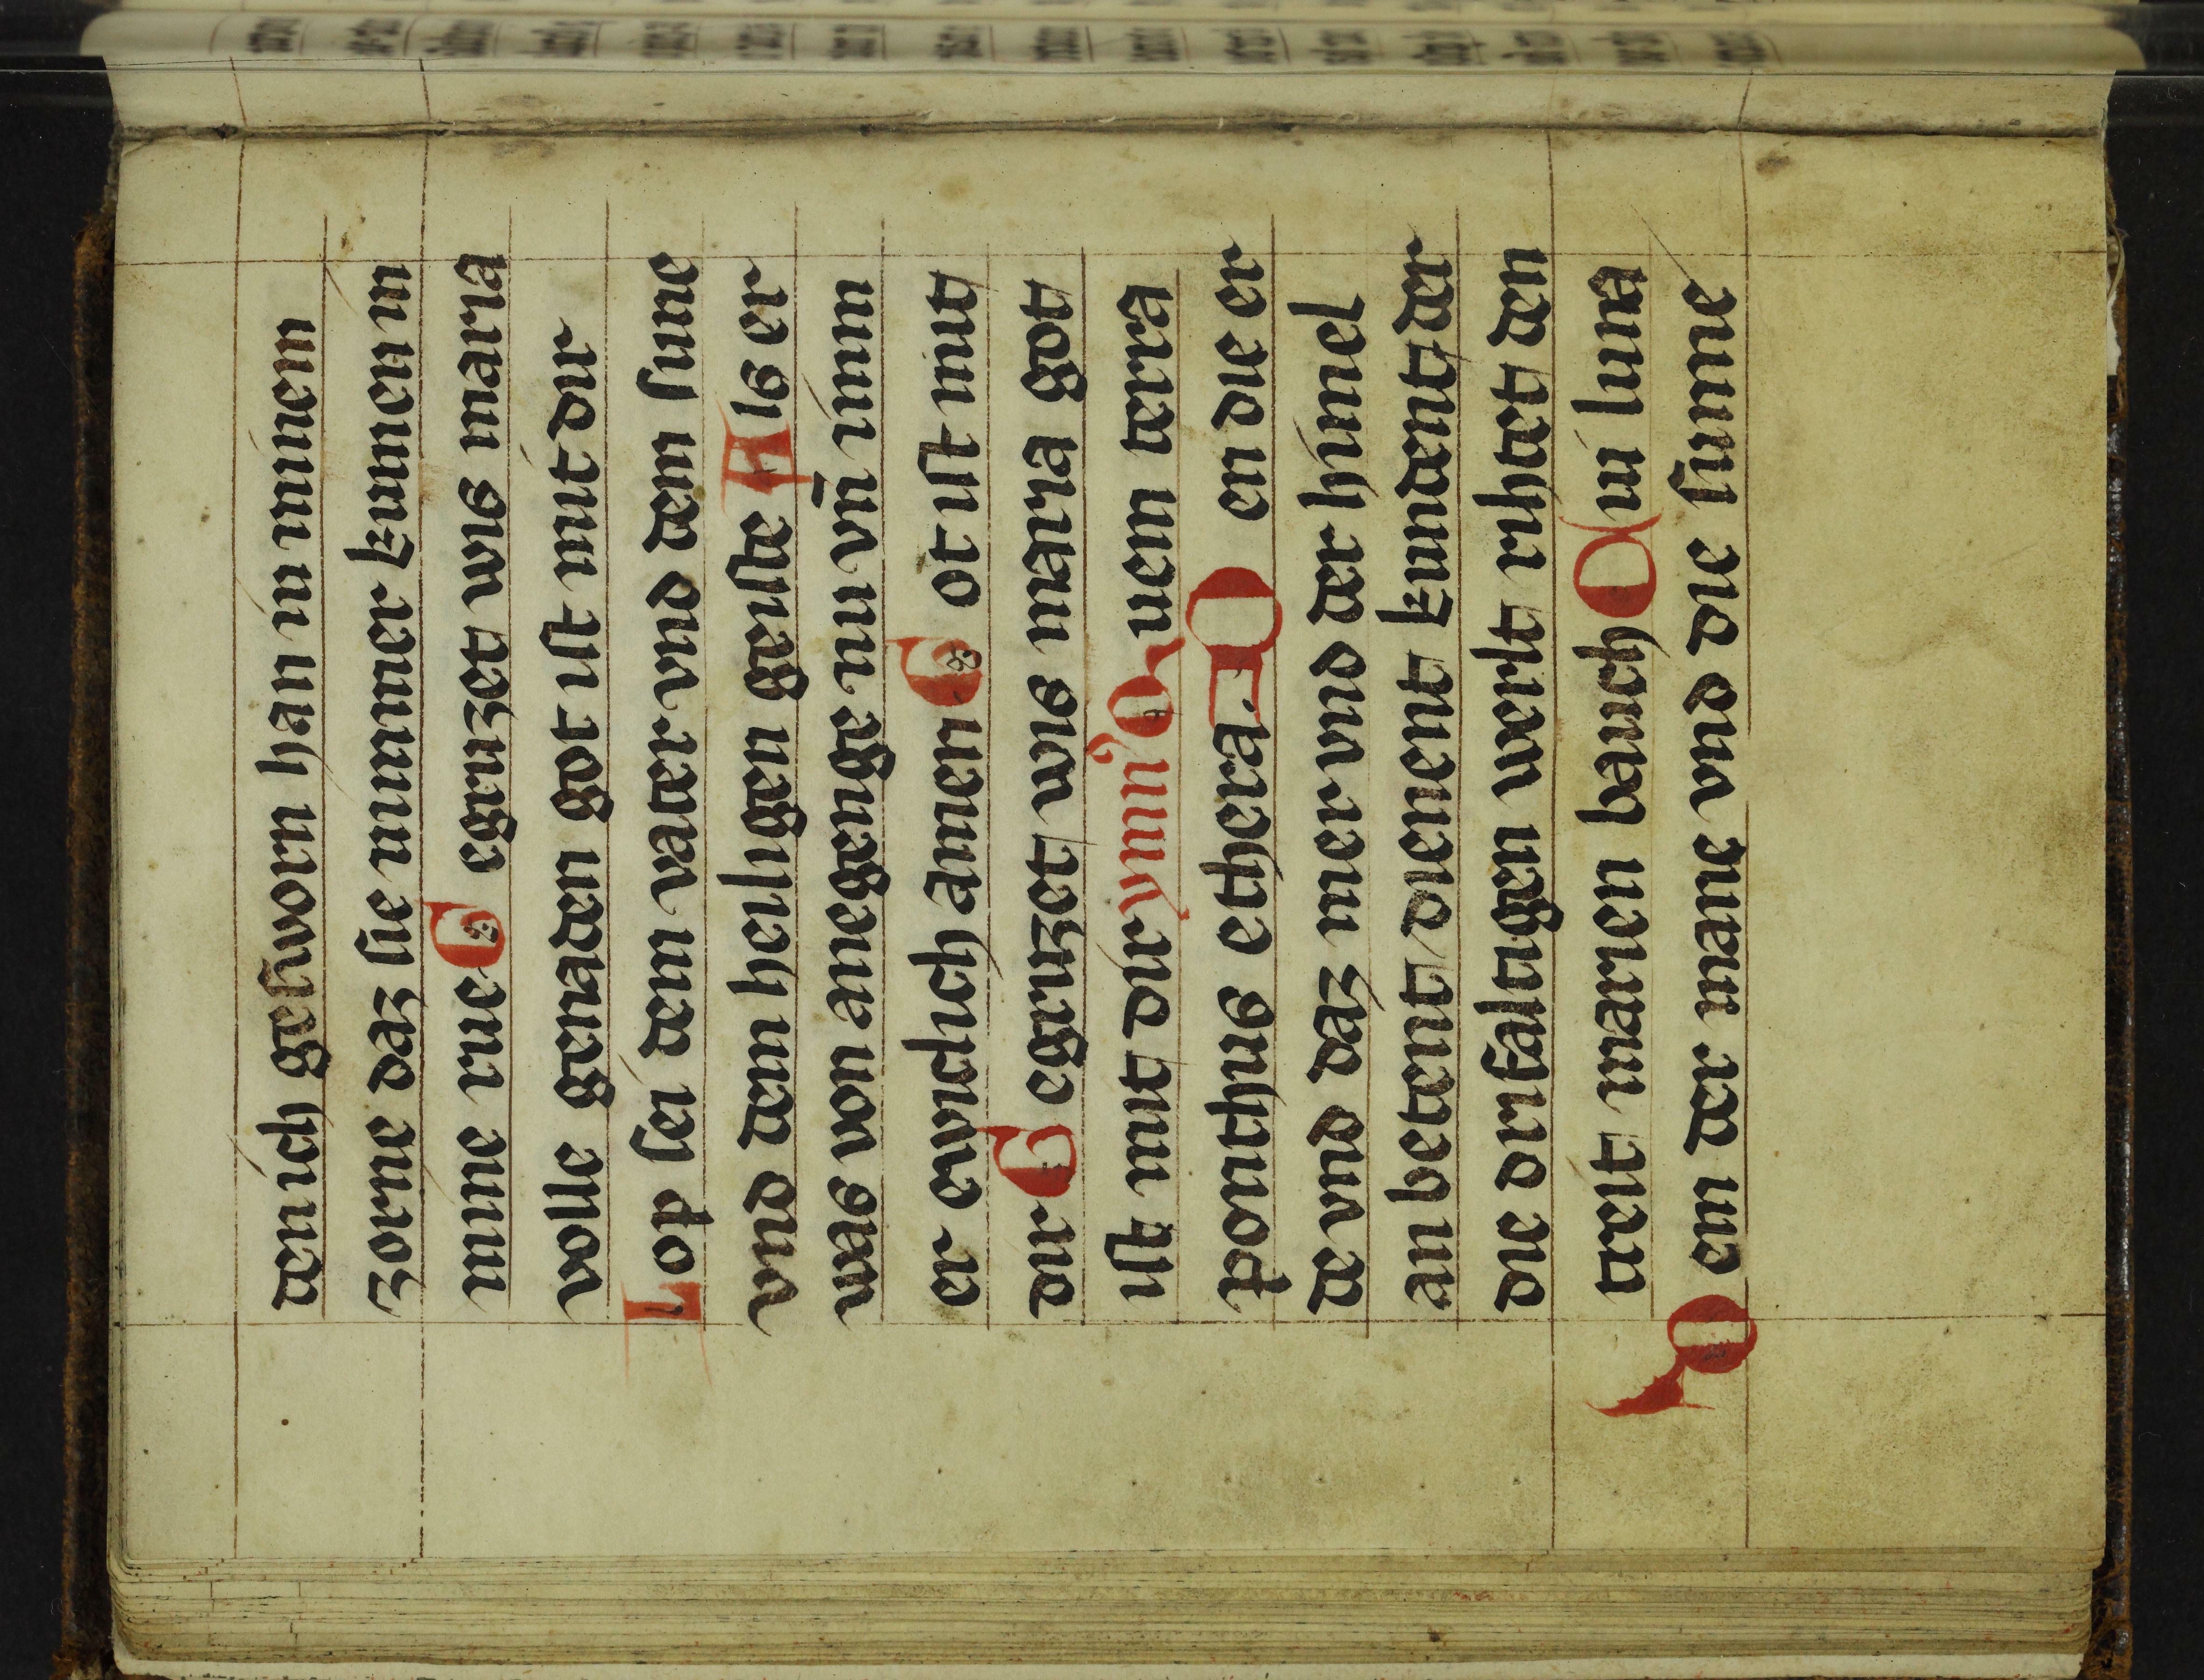 den ich gesworn han in minem
zorne daz sie nimmer kumen in
mine rue Gegruzet wis maria
volle genaden got ist mit dir
Lop sei dem vater vnd dem sune
vnd dem heiligen geiste Als er
was von anegenge nu vn̄ imm
er ewiclich amen Got ist mit
dir Gegruzet wis maria got
ist mit dir ymn' Quem terra
ponthus ethera. Den die er
de vnd daz mer vnd der himel
an betent dienent kundent der
die driualtigen werlt rihtet den
treit marien bauch Cui luna
Dem der mane vnd die sunne